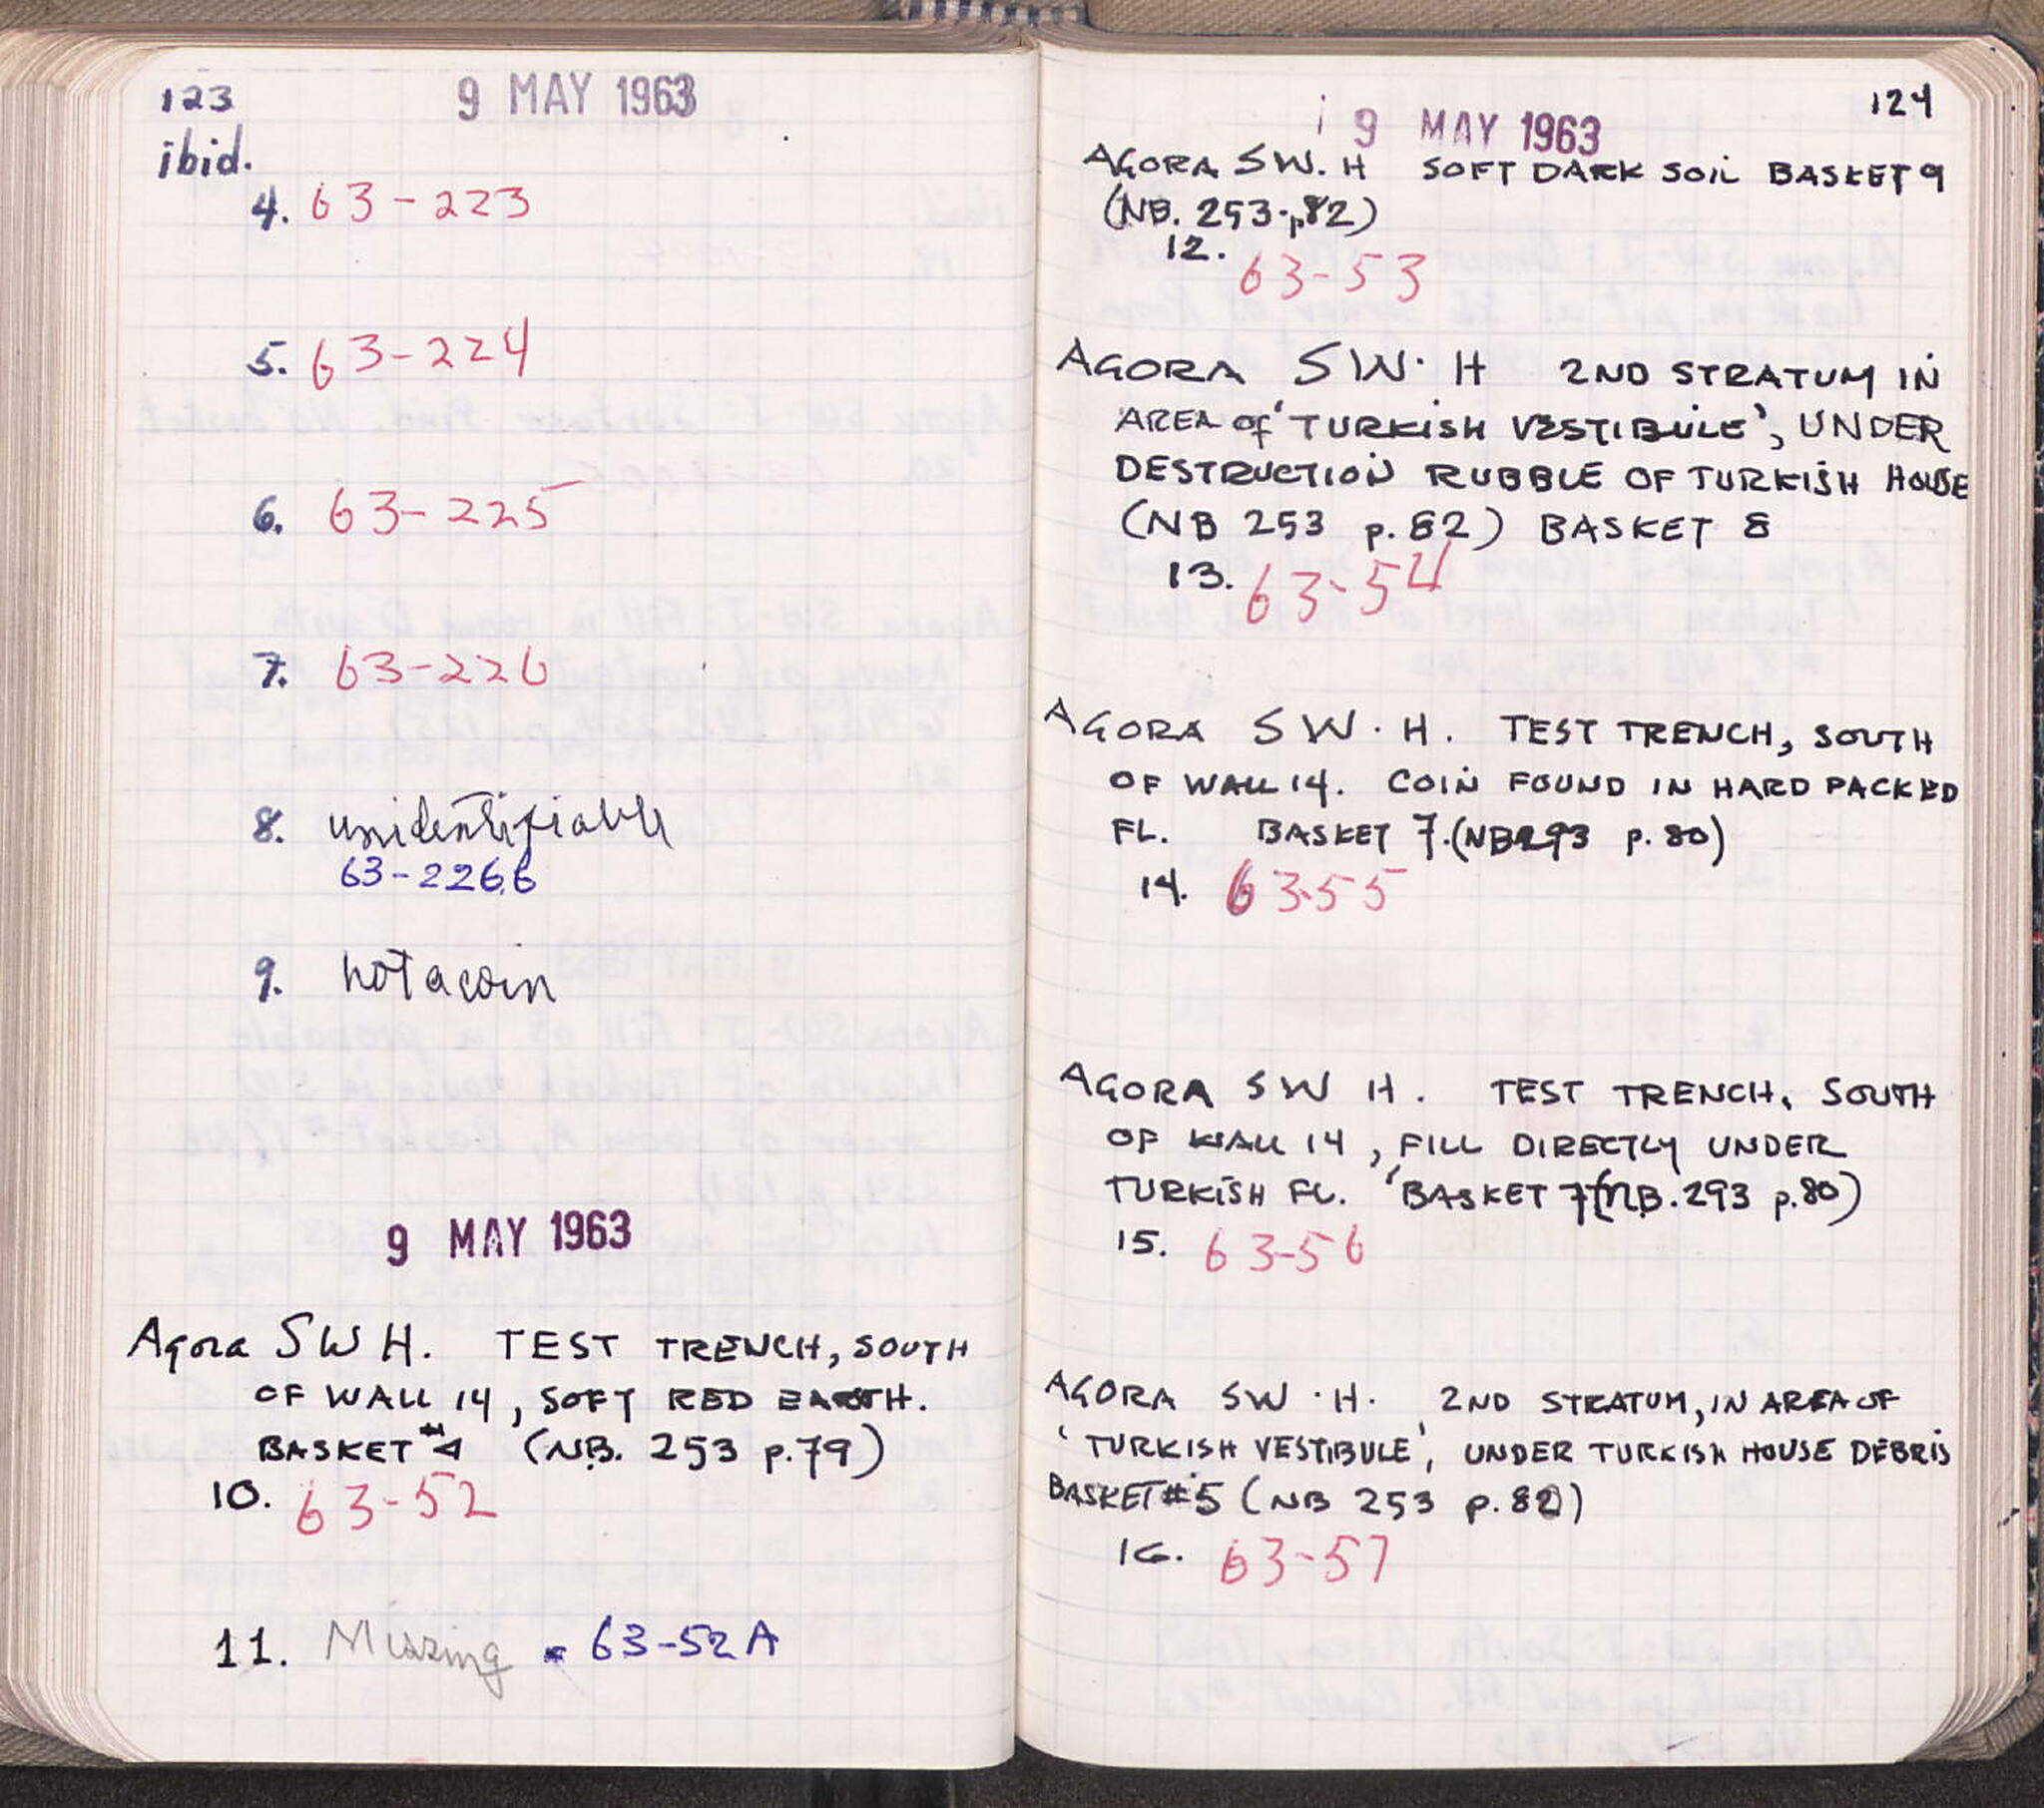 123
9 MAY 1963
ibid.
4. 63-223
5. 63-224
6. 63-225
7. 63-226
8. unidentifiable
63-226,6
9. not a coin
9 MAY 1963
Agora SW H. TEST TRENCH, SOUTH
OF WALL 14, SOFT RED EARTH.
BASKET #4 (NB. 253 p.79)
10. 63-52
11. Missing = 63-52A
124
9 MAY 1963
AGORA SW. H SOFT DARK SOIL BASKET 9
(NB. 253-p82)
12. 63-53
AGORA SW. H 2ND STRATUM IN
AREA of 'TURKISH VESTIBULE', UNDER
DESTRUCTION RUBBLE OF TURKISH HOUSE
(NB 253 p. 82) BASKET 8
13. 63-54
AGORA SW. H. TEST TRENCH, SOUTH
OF WALL 14. COIN FOUND IN HARD PACKED
FL. BASKET 7. (NB 293 p. 80)
14. 63-55
AGORA SW H. TEST TRENCH, SOUTH
OF WALL 14, FILL DIRECTLY UNDER
TURKISH FL. BASKET 7 (NB. 293 p. 80)
15. 63-56
AGORA SW. H. 2ND STRATUM, IN AREA OF
'TURKISH VESTIBULE', UNDER TURKISH HOUSE DEBRIS
BASKET #5 (NB 253 p. 82)
16. 63-57